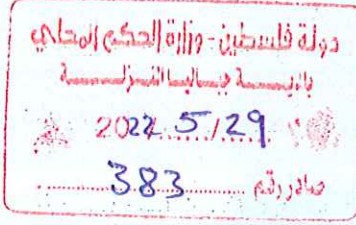 دولة فلسطين - وزارة الحكم المحلي
بلدية جباليا النزلة
2022 5/29
صادر رقم 383